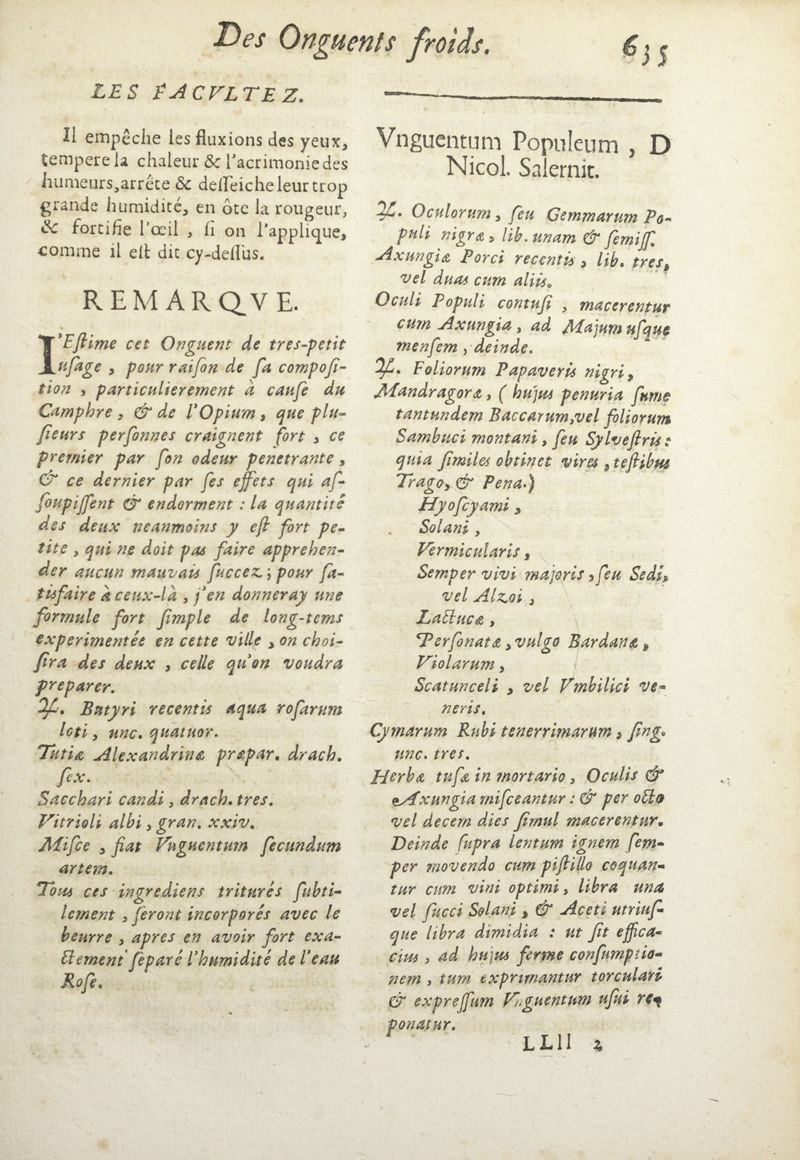 Des Onguents froids. 635
LES FACVLTEZ.
Il empêche les fluxions des yeux,
tempere la chaleur & l'acrimonie des
humeurs, arrête & desſeiche leur trop
grande humidité, en ôte la rougeur,
& fortifie l'œil, ſi on l'applique,
comme il est dit cy-deſſus.
REMARQVE.
I'Eſtime cet Onguent de tres-petit
uſage, pour raiſon de ſa compoſi-
tion, particulierement à cauſe du
Camphre, & de l'Opium, que plu-
ſieurs perſonnes craignent fort, ce
premier par ſon odeur penetrante,
& ce dernier par ſes effets qui aſ-
ſoupiſſent & endorment : la quantité
des deux neanmoins y eſt fort pe-
tite, qui ne doit pas faire apprehen-
der aucun mauvais ſuccez; pour ſa-
tisfaire à ceux-là, j'en donneray une
formule fort ſimple de long-tems
experimentée en cette ville, on choi-
ſira des deux, celle qu'on voudra
preparer.
℞. Butyri recentis aqua roſarum
loti, unc. quatuor.
Tutiæ Alexandrinæ præpar. drach.
ſex.
Sacchari candi, drach. tres.
Vitrioli albi, gran. xxiv.
Miſce, fiat Vnguentum ſecundum
artem.
Tous ces ingrediens triturés ſubti-
lement, ſeront incorporés avec le
beurre, apres en avoir fort exa-
ctement ſeparé l'humidité de l'eau
Roſe.
Vnguentum Populeum, D
Nicol. Salernit.
℞. Oculorum, ſeu Gemmarum Po-
puli nigræ, lib. unam & ſemiſſ.
Axungiæ Porci recentis, lib. tres,
vel duas cum aliis.
Oculi Populi contuſi, macerentur
cum Axungia, ad Majum uſque
menſem, deinde.
℞. Foliorum Papaveris nigri,
Mandragoræ, (hujus penuria ſume
tantundem Baccarum, vel foliorum
Sambuci montani, ſeu Sylveſtris:
quia ſimiles obtinet vires, teſtibus
Trago, & Pena.)
Hyoſcyami,
Solani,
Vermicularis,
Semper vivi majoris, ſeu Sedi,
vel Alzoi,
Lactucæ,
Perſonatæ, vulgo Bardanæ,
Violarum,
Scatunceli, vel Vmbilici ve-
neris.
Cymarum Rubi tenerrimarum, ſing.
unc. tres.
Herbæ tuſæ in mortario, Oculis &
Axungia miſceantur : & per octo
vel decem dies ſimul macerentur.
Deinde ſupra lentum ignem ſem-
per movendo cum piſtillo coquan-
tur cum vini optimi, libra una
vel ſucci Solani, & Aceti utriuſ-
que libra dimidia : ut ſit effica-
cius, ad hujus ferme conſumptio-
nem, tum exprimantur torculari
& expreſſum Vnguentum uſui re-
ponatur.
LLll 2